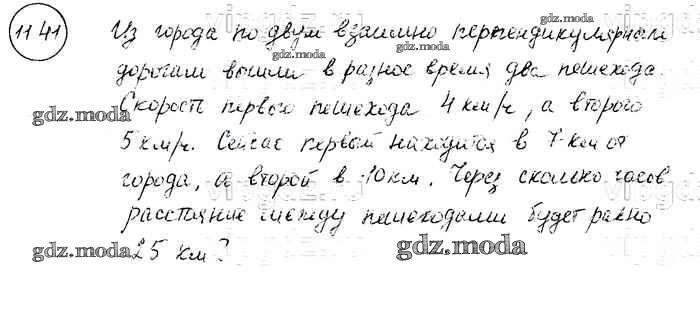 1141 Из города по двум взаимно перпендикулярным
дорогам вышли в разное время два пешехода.
Скорость первого пешехода 4 км/ч, а второго
gdz.moda
5 км/ч. Сейчас первый находится в 7 км от
города, а второй в 10 км. Через сколько часов
расстояние между пешеходами будет равно
25 км?
gdz.moda
gdz.moda
gdz.moda
gdz.moda